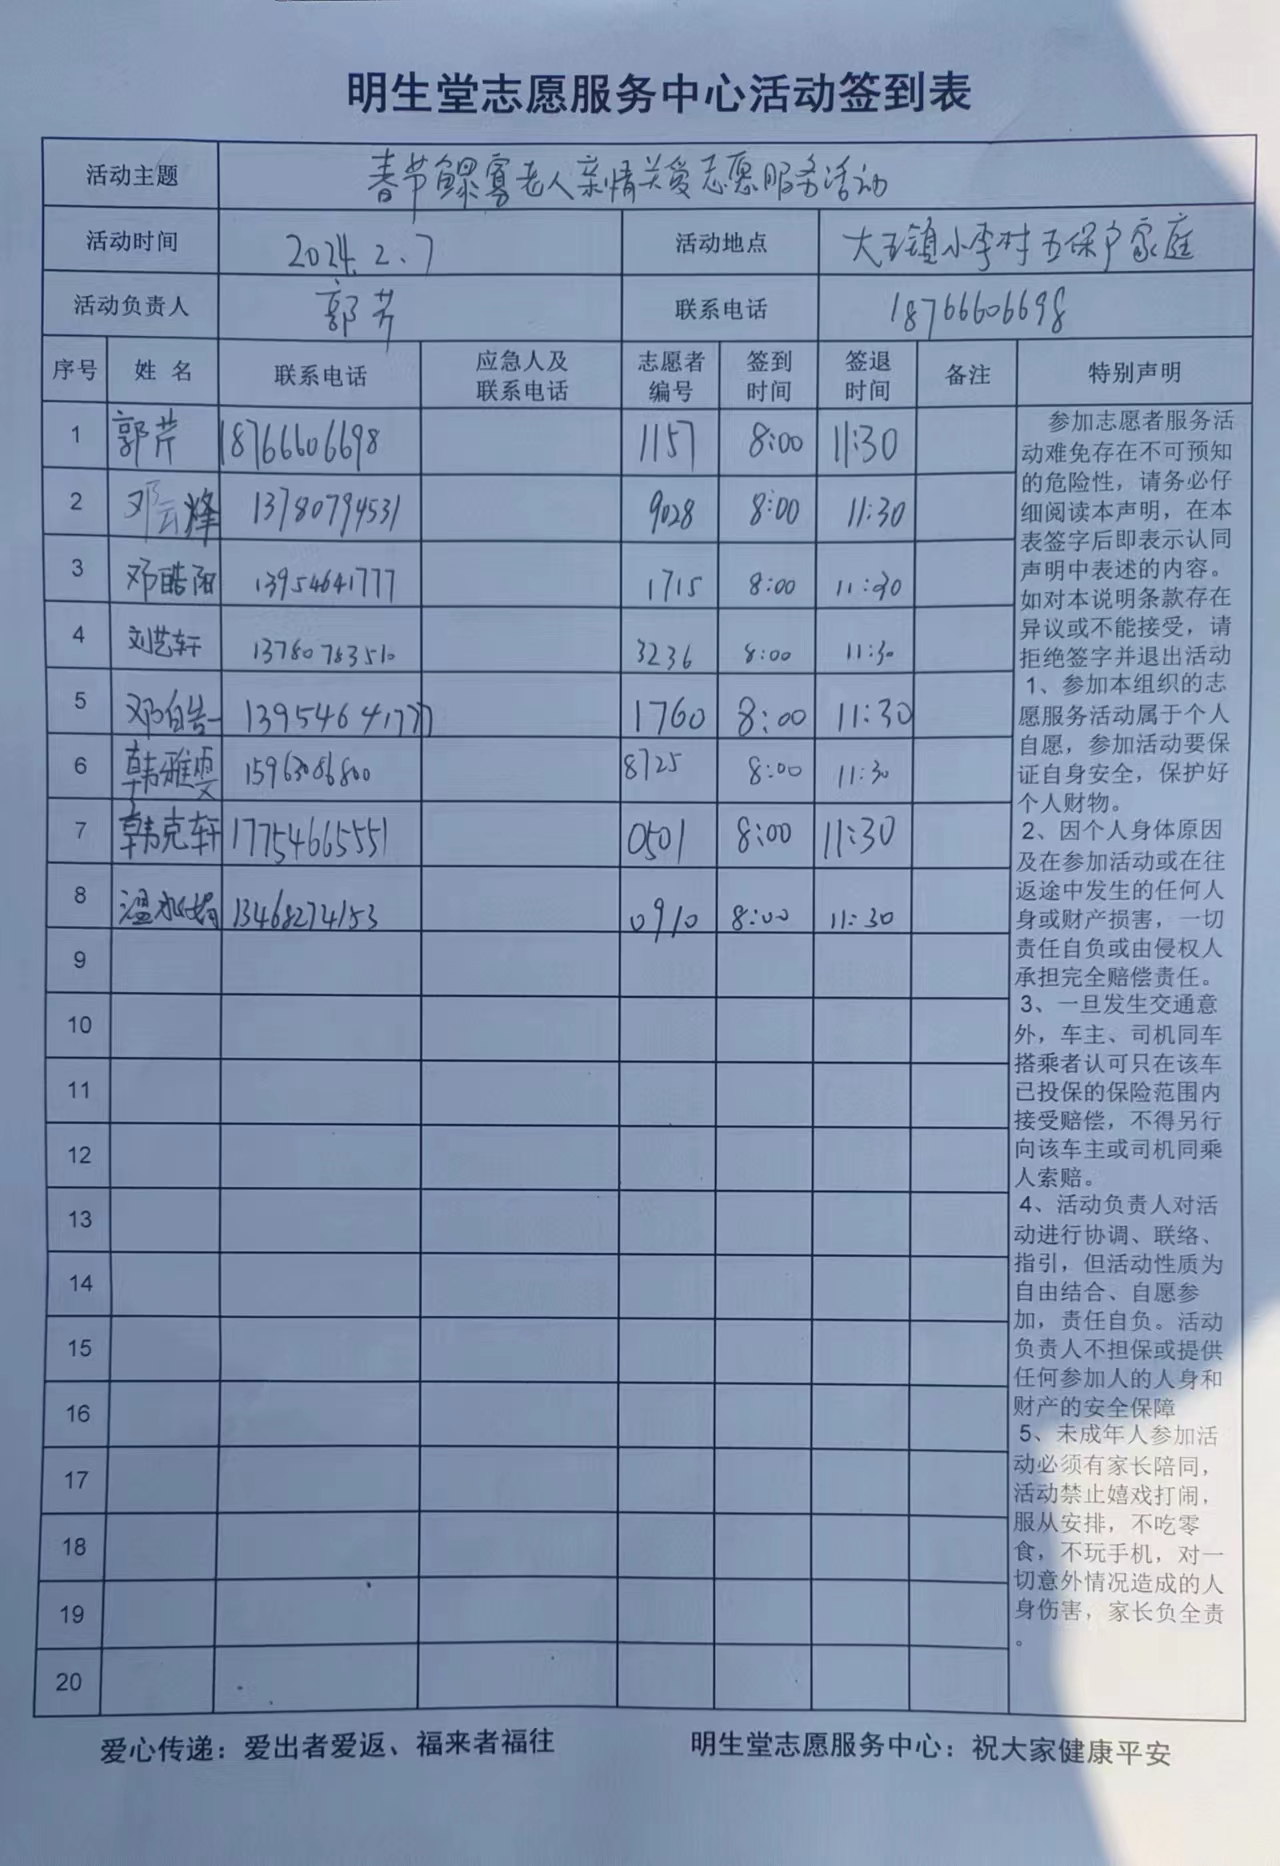 明生堂志愿服务中心活动签到表
活动主题 春节鳏寡老人亲情关爱志愿服务活动
活动时间 2024.2.7 活动地点 大王镇小李村五保户家庭
活动负责人 郭芹 联系电话 18766606698
序号 姓名 联系电话 应急人及联系电话 志愿者编号 签到时间 签退时间 备注 特别声明
1 郭芹 18766606698 1157 8:00 11:30
2 邓云烽 13780794531 9028 8:00 11:30
3 邓皓阳 13954641777 1715 8:00 11:30
4 刘艺轩 13780783510 3236 8:00 11:30
5 邓皓一 13954641777 1760 8:00 11:30
6 韩雅雯 15963086800 8725 8:00 11:30
7 韩克轩 17754665551 0501 8:00 11:30
8 温 13468274153 0910 8:00 11:30
9
10
11
12
13
14
15
16
17
18
19
20
参加志愿者服务活
动难免存在不可预知
的危险性，请务必仔
细阅读本声明，在本
表签字后即表示认同
声明中表述的内容。
如对本说明条款存在
异议或不能接受，请
拒绝签字并退出活动
1、参加本组织的志
愿服务活动属于个人
自愿，参加活动要保
证自身安全，保护好
个人财物。
2、因个人身体原因
及在参加活动或在往
返途中发生的任何人
身或财产损害，一切
责任自负或由侵权人
承担完全赔偿责任。
3、一旦发生交通意
外，车主、司机同车
搭乘者认可只在该车
已投保的保险范围内
接受赔偿，不得另行
向该车主或司机同乘
人索赔。
4、活动负责人对活
动进行协调、联络、
指引，但活动性质为
自由结合、自愿参
加，责任自负。活动
负责人不担保或提供
任何参加人的人身和
财产的安全保障
5、未成年人参加活
动必须有家长陪同，
活动禁止嬉戏打闹，
服从安排，不吃零
食，不玩手机，对一
切意外情况造成的人
身伤害，家长负全责
。
爱心传递：爱出者爱返、福来者福往 明生堂志愿服务中心：祝大家健康平安